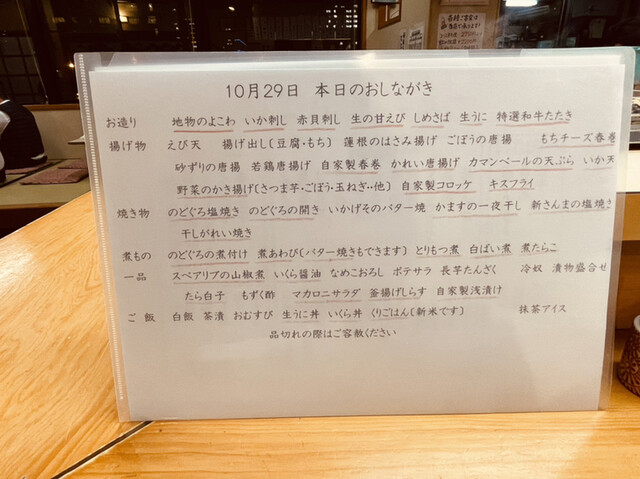 10月29日 本日のおしながき
お造り 地物のよこわ いか刺し 赤貝刺し 生の甘えび しめさば 生うに 特選和牛たたき
揚げ物 えび天 揚げ出し〔豆腐・もち〕 蓮根のはさみ揚げ ごぼうの唐揚 もちチーズ春巻
砂ずりの唐揚 若鶏唐揚げ 自家製春巻 かれい唐揚げ カマンベールの天ぷら いか天
野菜のかき揚げ〔さつま芋・ごぼう・玉ねぎ・・他〕 自家製コロッケ キスフライ
焼き物 のどぐろ塩焼き のどぐろの開き いかげそのバター焼 かますの一夜干し 新さんまの塩焼き
干しがれい焼き
煮もの のどぐろの煮付け 煮あわび〔バター焼きもできます〕 とりもつ煮 白ばい煮 煮たらこ
一品 スペアリブの山椒煮 いくら醤油 なめこおろし ポテサラ 長芋たんざく 冷奴 漬物盛合せ
たら白子 もずく酢 マカロニサラダ 釜揚げしらす 自家製浅漬け
ご飯 白飯 茶漬 おむすび 生うに丼 いくら丼 くりごはん〔新米です〕 抹茶アイス
品切れの際はご容赦ください